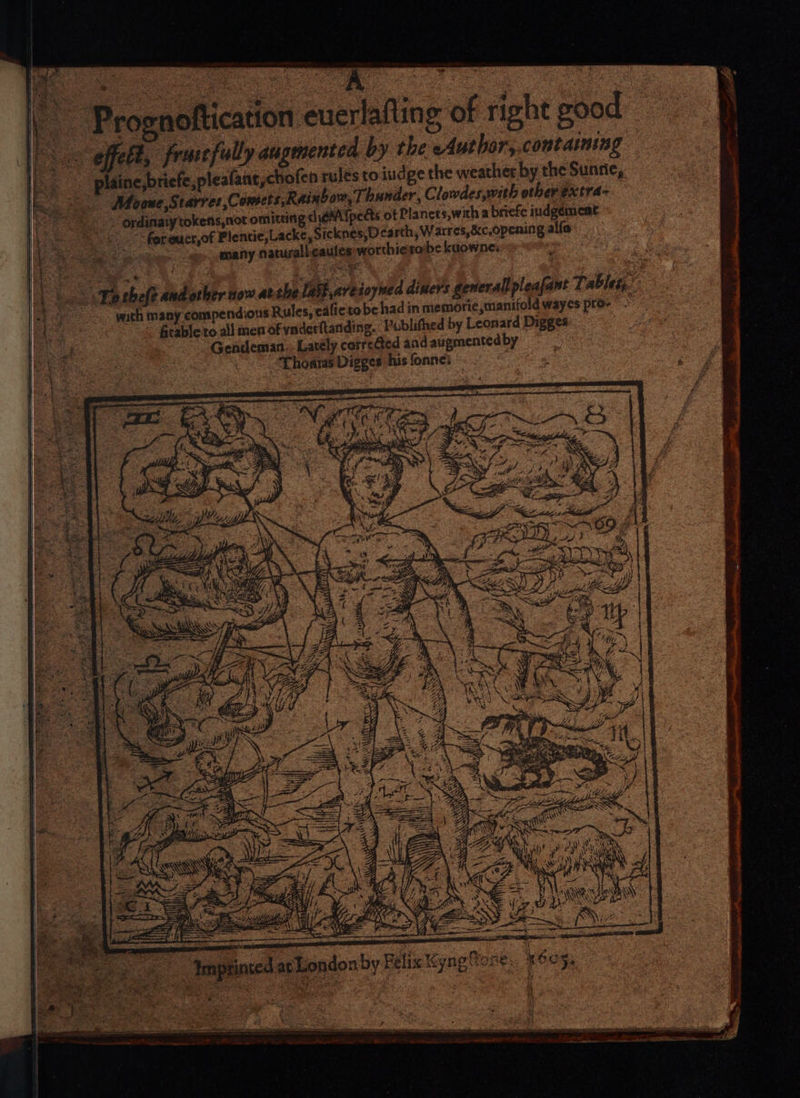 A
Prognoſtication euerlaſting of right good
effect, fruitfully augmented by the Author, containing
plaine, briefe, pleaſant, choſen rules to iudge the weather by the Sunne,
Moone, Starres, Comets, Rainbow, Thunder, Clowdes, with other extra-
ordinary tokens, not omitting the Aſpects of Planets, with a briefe iudgement
for euer, of Plentie, Lacke, Sicknes, Dearth, Warres, &c, opening alſo
many naturall cauſes worthie to be knowne.
To theſe and other now at the laſt, are ioyned diuers generall pleaſant Tables,
with many compendious Rules, eaſie to be had in memorie, manifold wayes pro-
fitable to all men of vnderſtanding. Publiſhed by Leonard Digges
Gentleman. Lately corrected and augmented by
Thomas Digges his ſonne.
♊ ♈ ♉
♋
♍
♎
♏
Imprinted at London by Felix Kyngſtone. 1605.